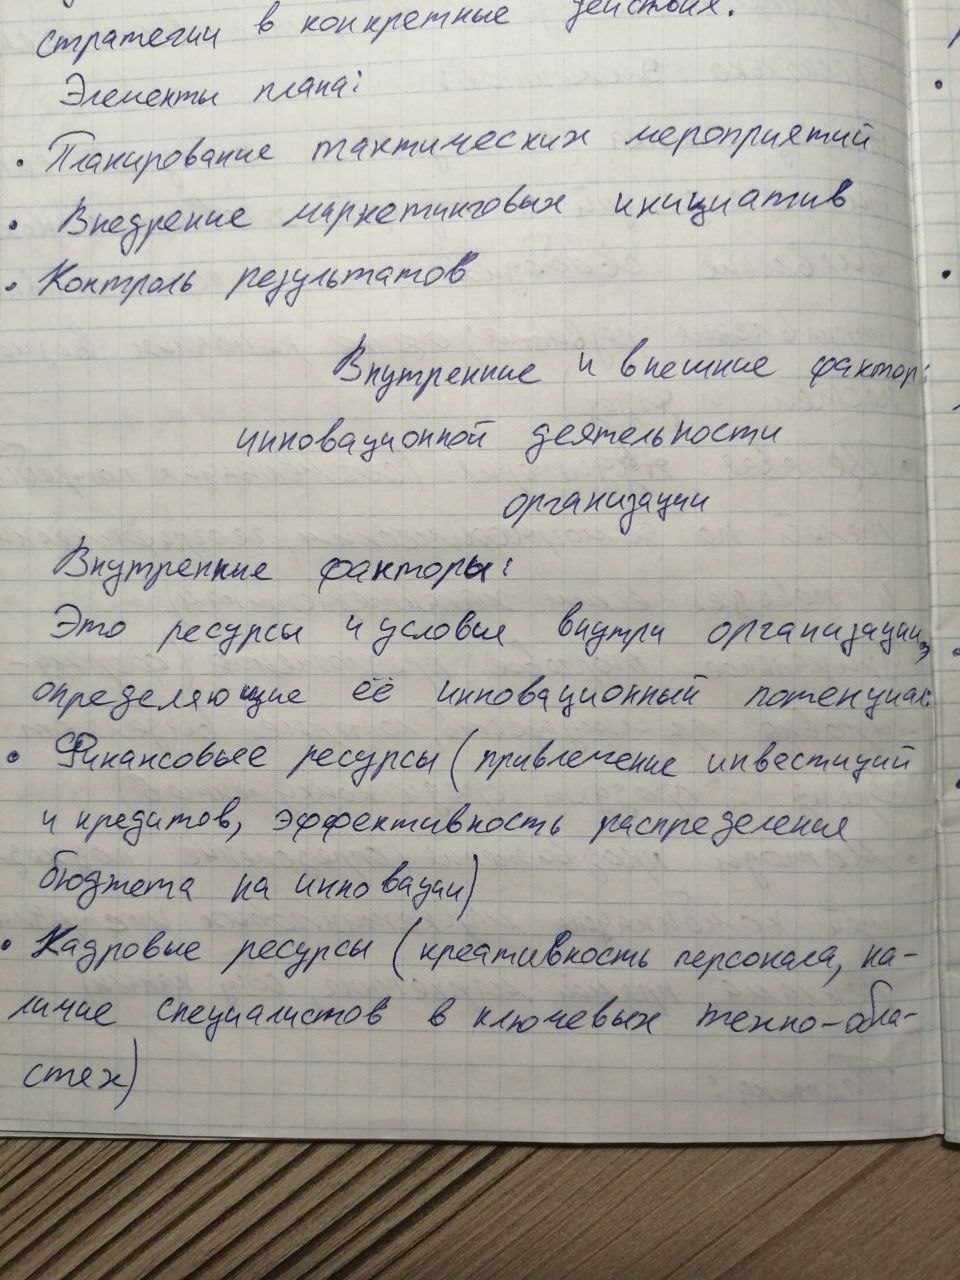 стратегии в конкретные действия.
Элементы плана:
• Планирование тактических мероприятий
• Внедрение маркетинговых инициатив
• Контроль результатов
Внутренние и внешние фактор
инновационной деятельности
организации
Внутренние факторы:
Это ресурсы и условия внутри организации,
определяющие её инновационный потенциал
• Финансовые ресурсы (привлечение инвестиций
и кредитов, эффективность распределения
бюджета на инновации)
• Кадровые ресурсы (креативность персонала, на-
личие специалистов в ключевых техно-обла-
стях)